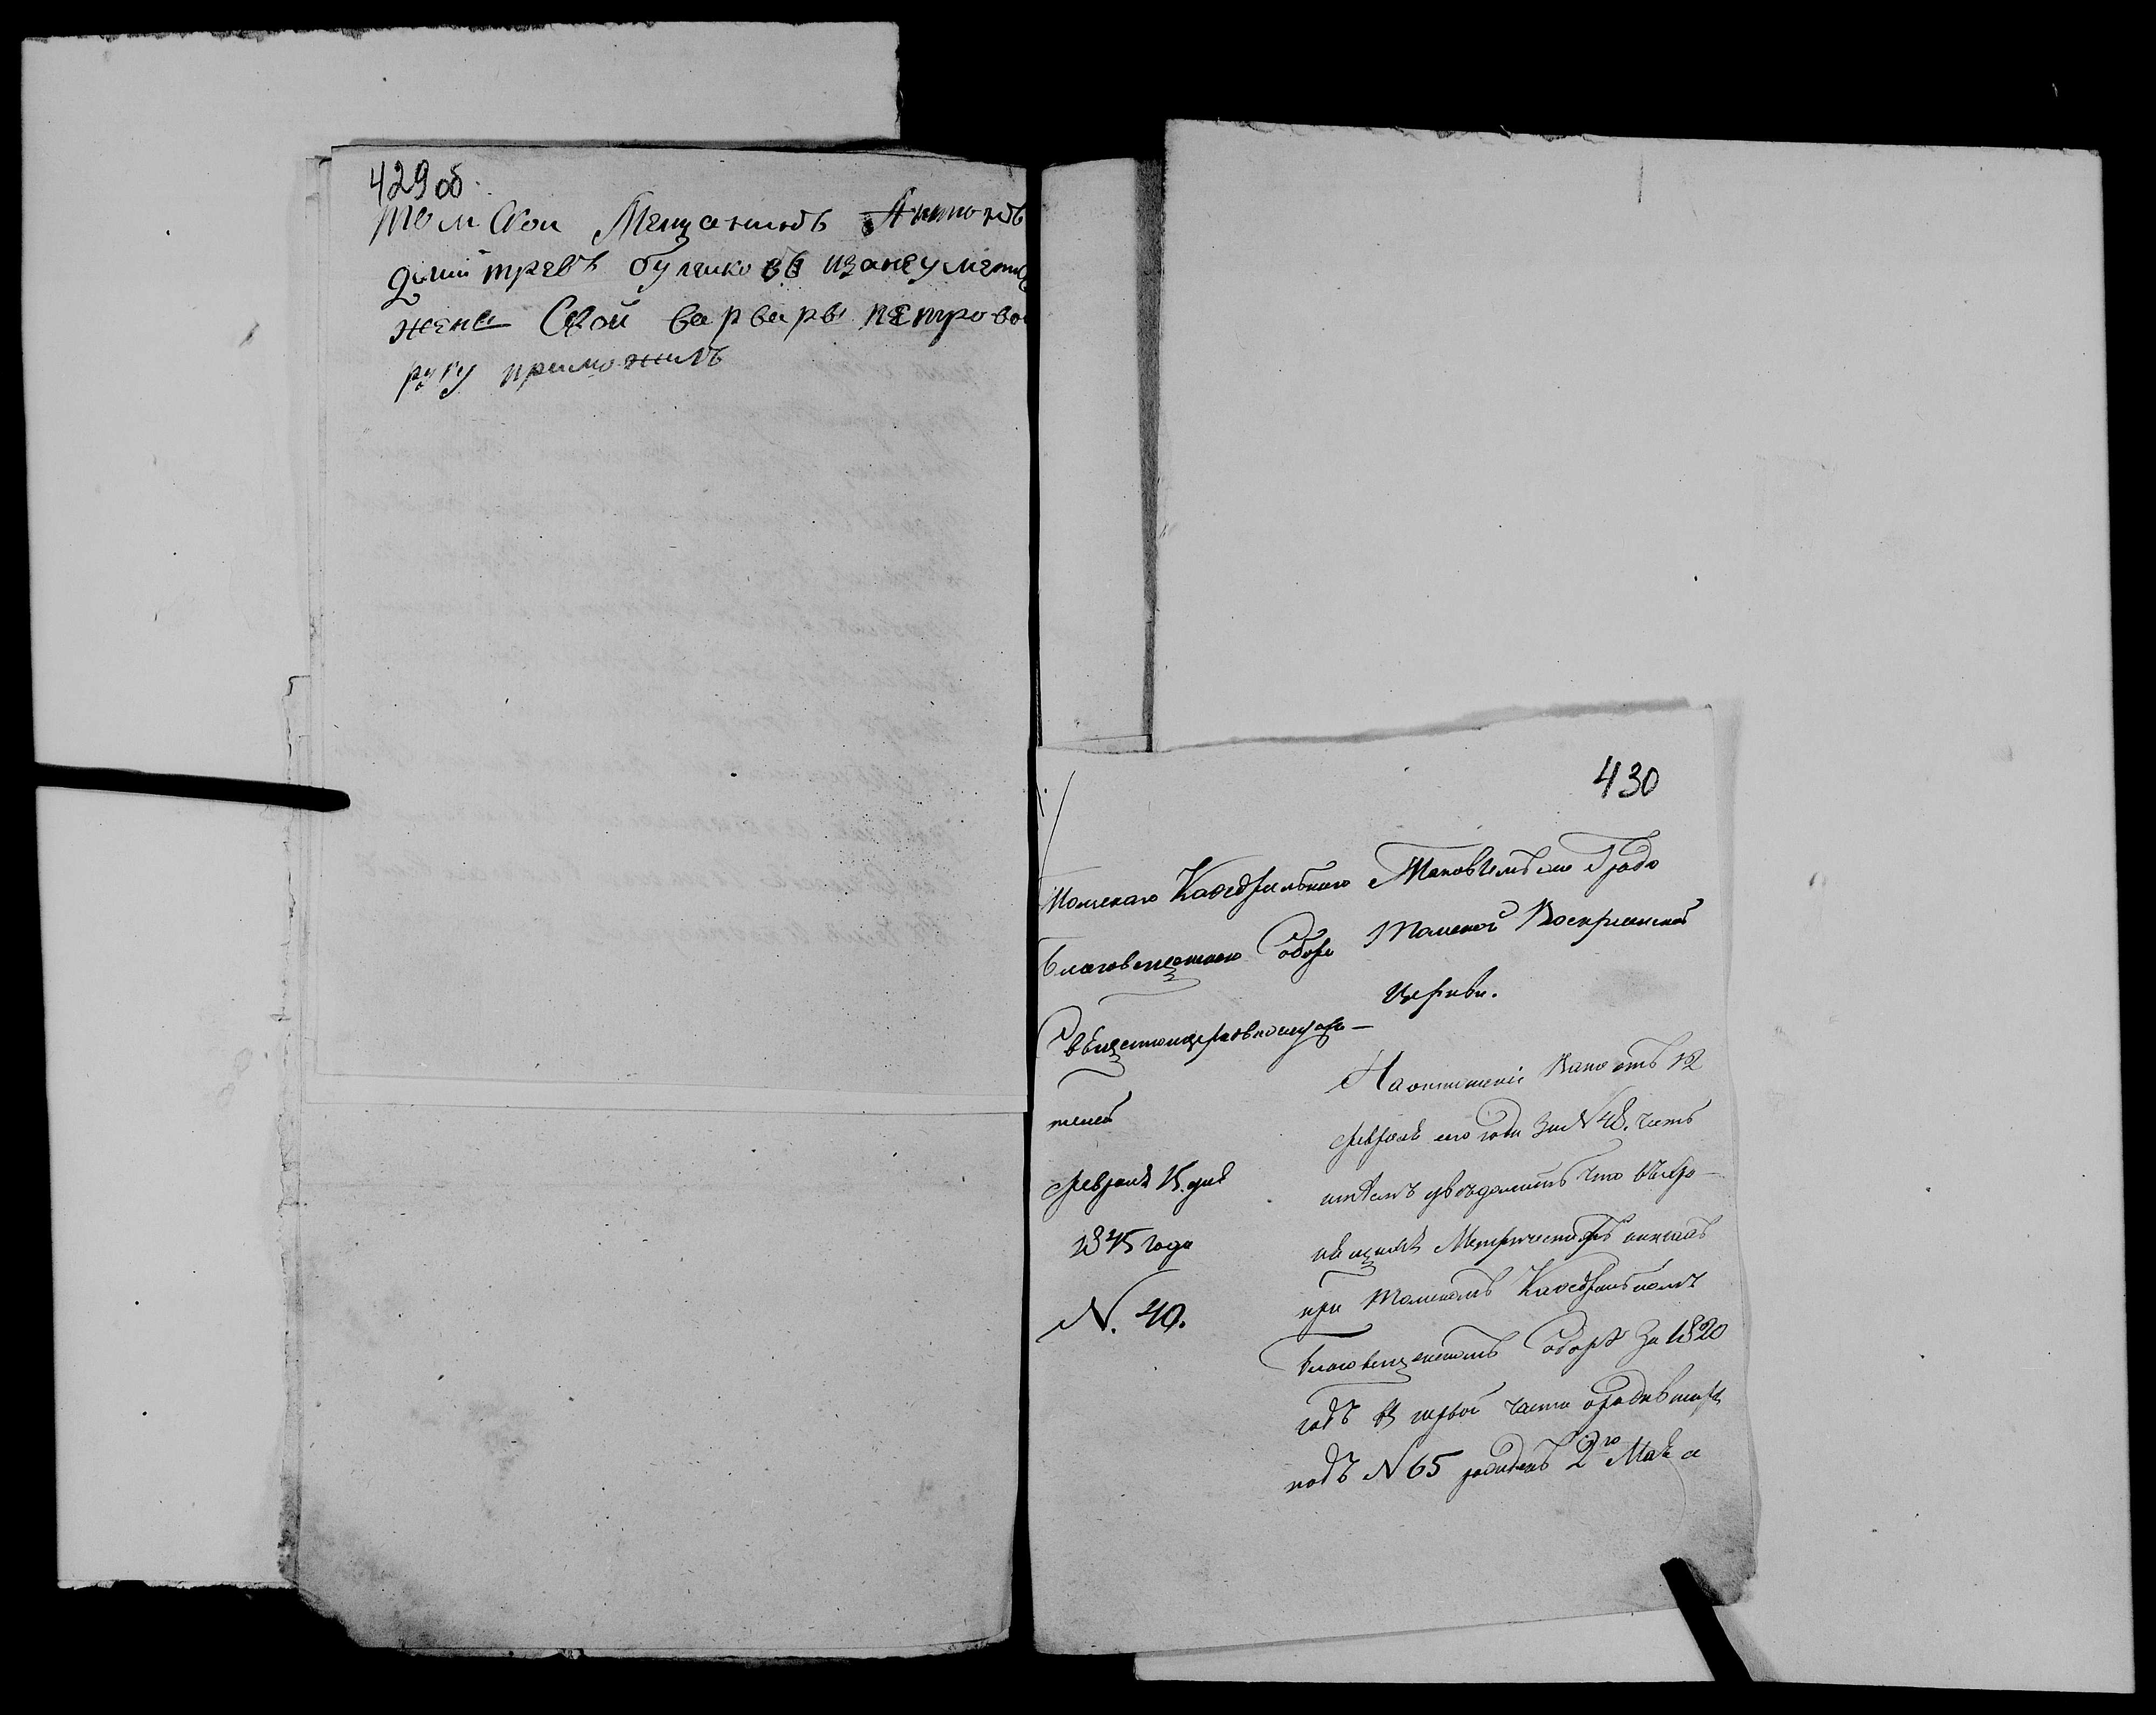 429 об.
Томской Мещанинъ Антонъ
Дмитревъ булыковъ
жены Свои варвары петровои
руку приложилъ
430
Томскаго Каѳедральнаго
благовещенскаго Собора
Священноцерковнослужи-
телей
Февраля 15. дня
1845 года
N. 40.
Таковымъ же Градо
Томской Воскресенской
Церкви.
На отношеніе Ваше отъ 12
февраля сего года за N 48. честь
имѣемъ увѣдомить что въ хра-
нящихся Метрическихъ книгахъ
при Томскомъ Каѳедральномъ
Благовещенскомъ Соборѣ за 1820
годъ въ первой части о родившихся
подъ N 65 рожденъ 2го Маія а